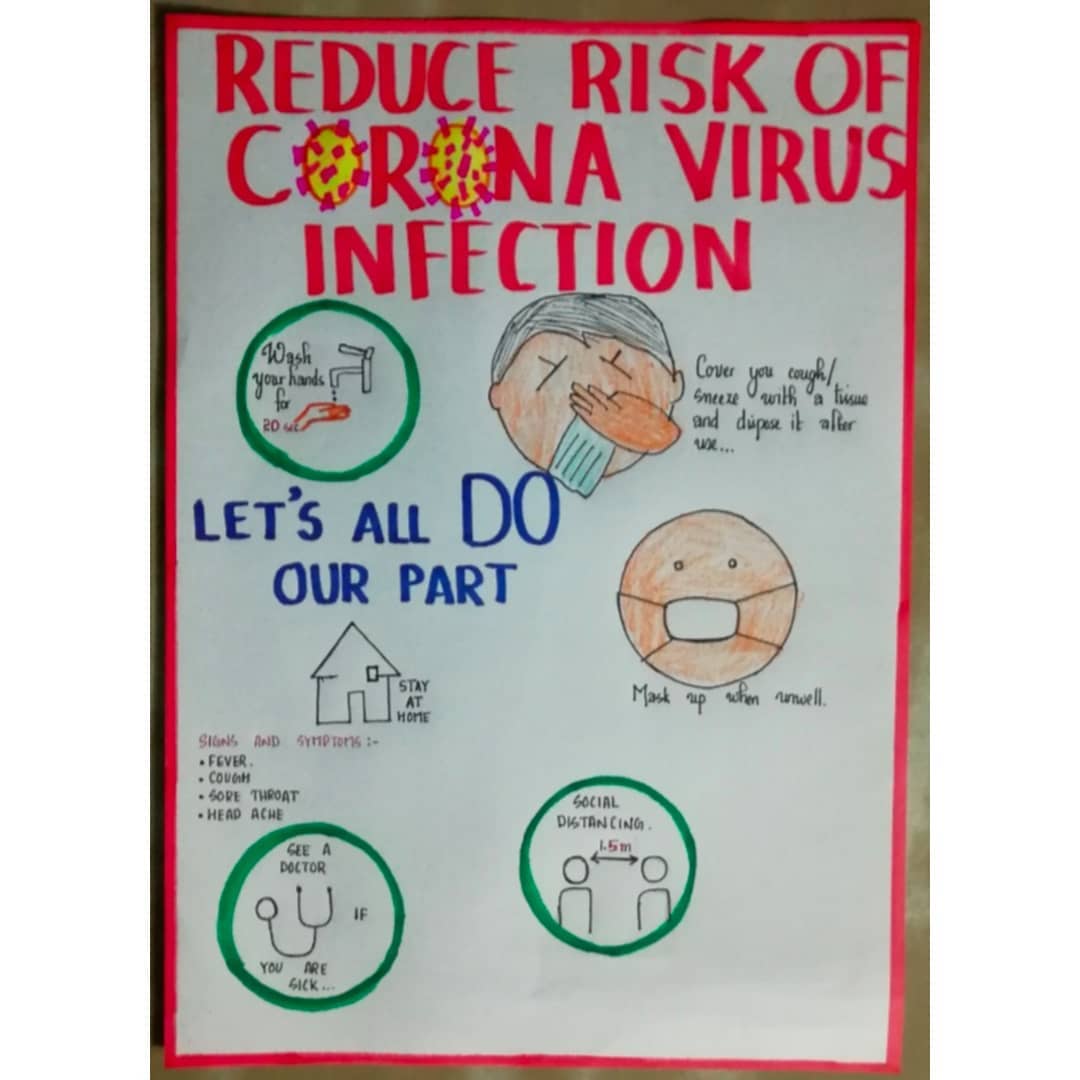 REDUCE RISK OF
CORONA VIRUS
INFECTION
Wash
your hands
for
20 sec
Cover you cough/
sneeze with a tissue
and dispose it after
use...
LET'S ALL DO
OUR PART
Mask up when unwell.
STAY
AT
HOME
SIGNS AND SYMPTOMS :-
• FEVER.
• COUGH
• SORE THROAT
• HEAD ACHE
SEE A
DOCTOR
IF
YOU ARE
SICK...
SOCIAL
DISTANCING.
1.5m